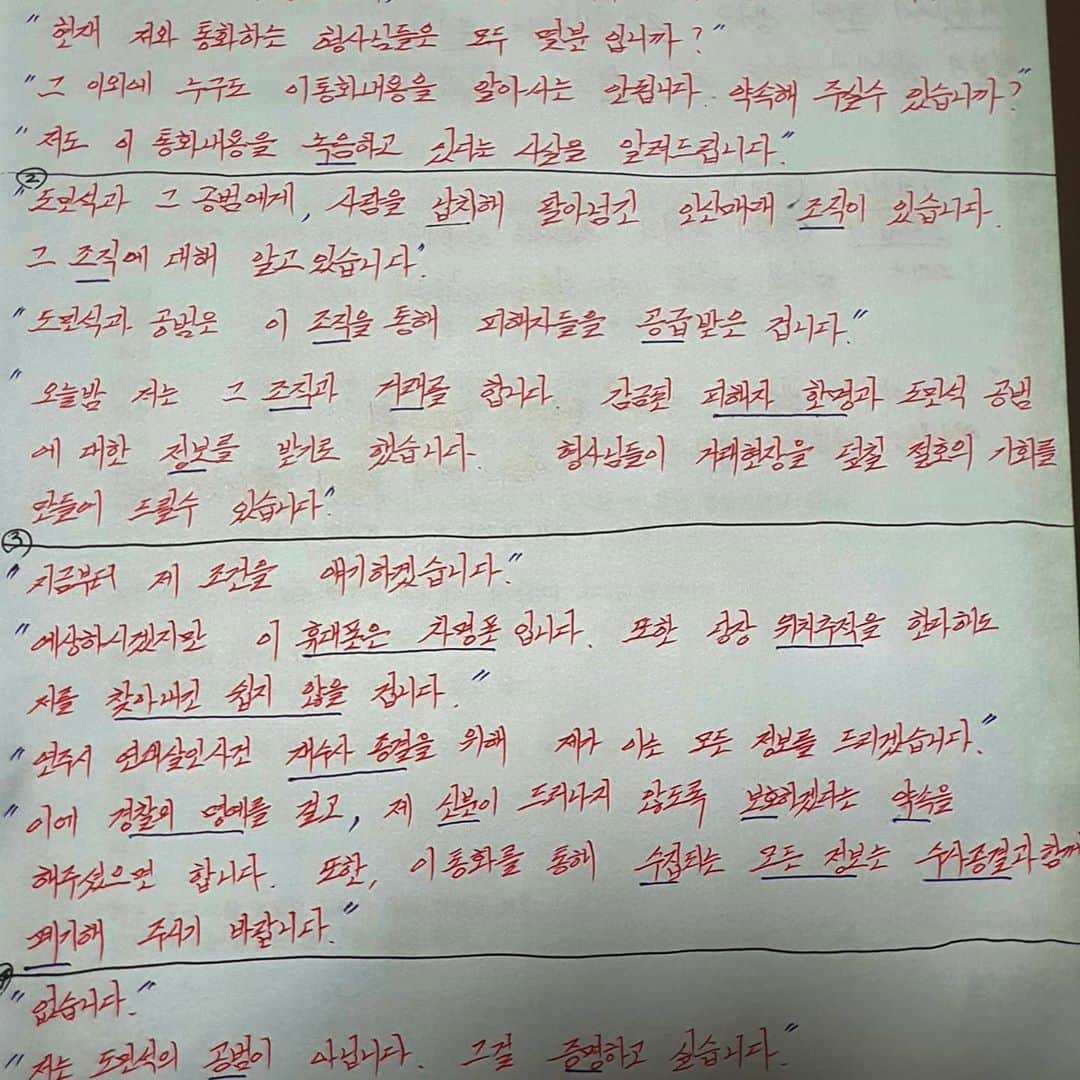 "현재 저와 통화하는 형사님들은 모두 몇분 입니까?"
"그 이외에 누구도 이통화내용을 알아서는 안됩니다. 약속해 주실수 있습니까?"
"저도 이 통화내용을 녹음하고 있다는 사실을 알려드립니다."
②
"도민석과 그 공범에게, 사람을 납치해 팔아넘긴 인신매매 조직이 있습니다.
그 조직에 대해 알고있습니다."
"도민석과 공범은 이 조직을 통해 피해자들을 공급받은 겁니다."
"오늘밤 저는 그 조직과 거래를 합니다. 감금된 피해자 한명과 도민석 공범
에 대한 정보를 받기로 했습니다. 형사님들이 거래현장을 덮칠 절호의 기회를
만들어 드릴수 있습니다"
③
"지금부터 제 조건을 얘기하겠습니다."
"예상하시겠지만 이 휴대폰은 차명폰입니다. 또한 당장 위치추적을 한다해도
저를 찾아내긴 쉽지 않을 겁니다."
"연주시 연쇄살인사건 재수사 종결을 위해 제가 아는 모든 정보를 드리겠습니다."
"이에 경찰의 명예를 걸고, 제 신분이 드러나지 않도록 보호하겠다는 약속을
해주셨으면 합니다. 또한, 이통화를 통해 수집되는 모든 정보는 수사종결과 함께
폐기해 주시기 바랍니다."
"없습니다."
"저는 도민석의 공범이 아닙니다. 그걸 증명하고 싶습니다."